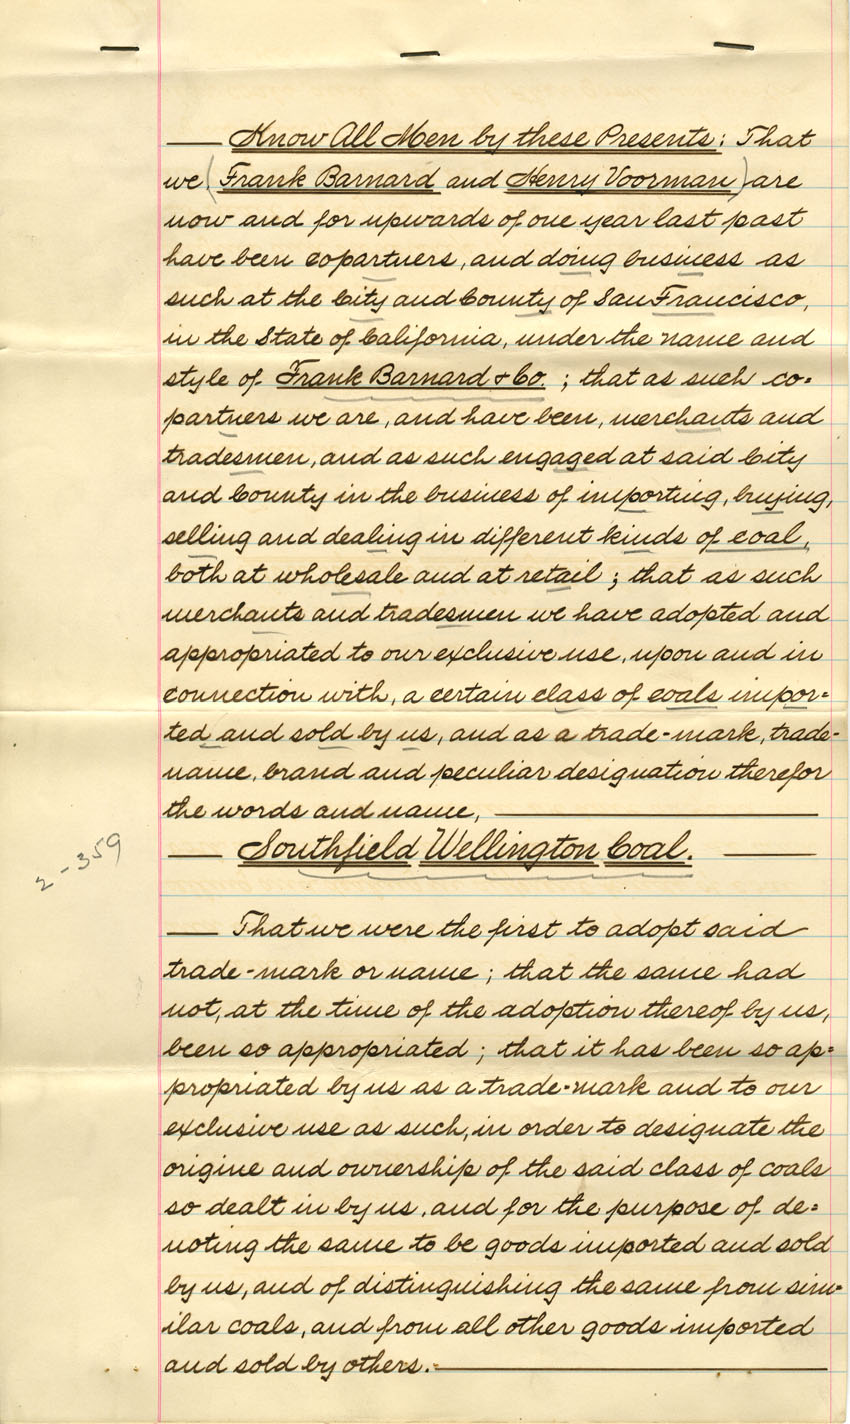 — Know All Men by these Presents: That
we (Frank Barnard and Henry Voorman) are
now and for upwards of one year last past
have been copartners, and doing business as
such at the City and County of San Francisco,
in the State of California, under the name and
style of Frank Barnard & Co. ; that as such co=
partners we are, and have been, merchants and
tradesmen, and as such engaged at said City
and County in the business of importing, buying,
selling and dealing in different kinds of coal,
both at wholesale and at retail ; that as such
merchants and tradesmen we have adopted and
appropriated to our exclusive use, upon and in
connection with, a certain class of coals impor=
ted and sold by us, and as a trade-mark, trade-
name, brand and peculiar designation therefor
the words and name, —
— Southfield Wellington Coal. —
2-359
— That we were the first to adopt said
trade-mark or name ; that the same had
not, at the time of the adoption thereof by us,
been so appropriated ; that it has been so ap=
propriated by us as a trade-mark and to our
exclusive use as such, in order to designate the
origine and ownership of the said class of coals
so dealt in by us, and for the purpose of de=
noting the same to be goods imported and sold
by us, and of distinguishing the same from sim=
ilar coals, and from all other goods imported
and sold by others. —